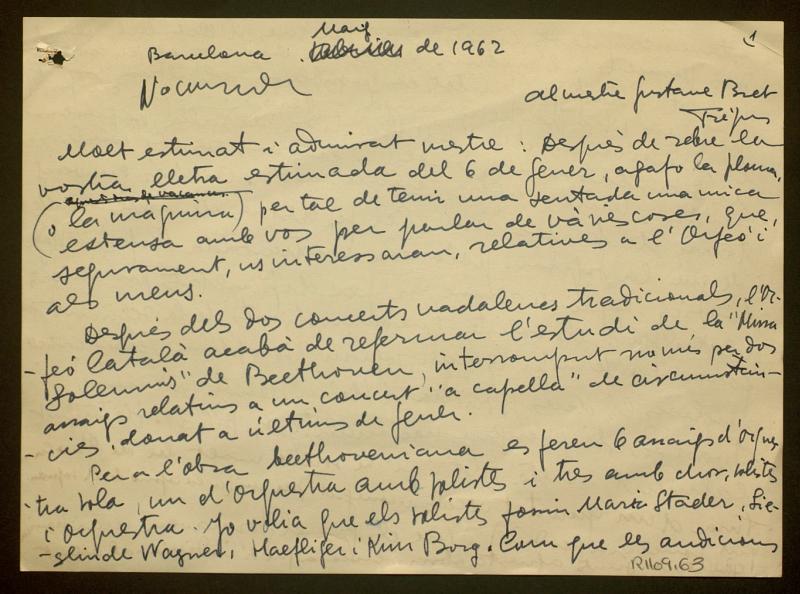 1
Maig
Barcelona de 1962
al mestre Gustave Bret
Fréjus
Molt estimat i admirat mestre: Després de rebre la
vostra lletra estimada del 6 de gener, agafo la ploma,
(o la màquina) per tal de tenir una sentada una mica
estensa amb vos per parlar de vàries coses, que,
segurament, us interessaran, relatives a l'Orfeó i
als meus.
Després dels dos concerts nadalencs tradicionals, l'Or-
-feó Català acabà de refermar l'estudi de la "Missa
Solemnis" de Beethoven, interromput només per dos
assaigs relatius a un concert "a capella" de circumstàn-
-cies donat a últims de gener.
Per a l'obra beethoveniana es feren 6 assaigs d'Orques
-tra sola, un d'Orquestra amb solistes i tres amb chor, solistes
i Orquestra. Jo volia que els solistes fossin Maria Stader, Sie-
-glinde Wagner, Haefliger i Kim Borg. Com que les audicions
R1109.63